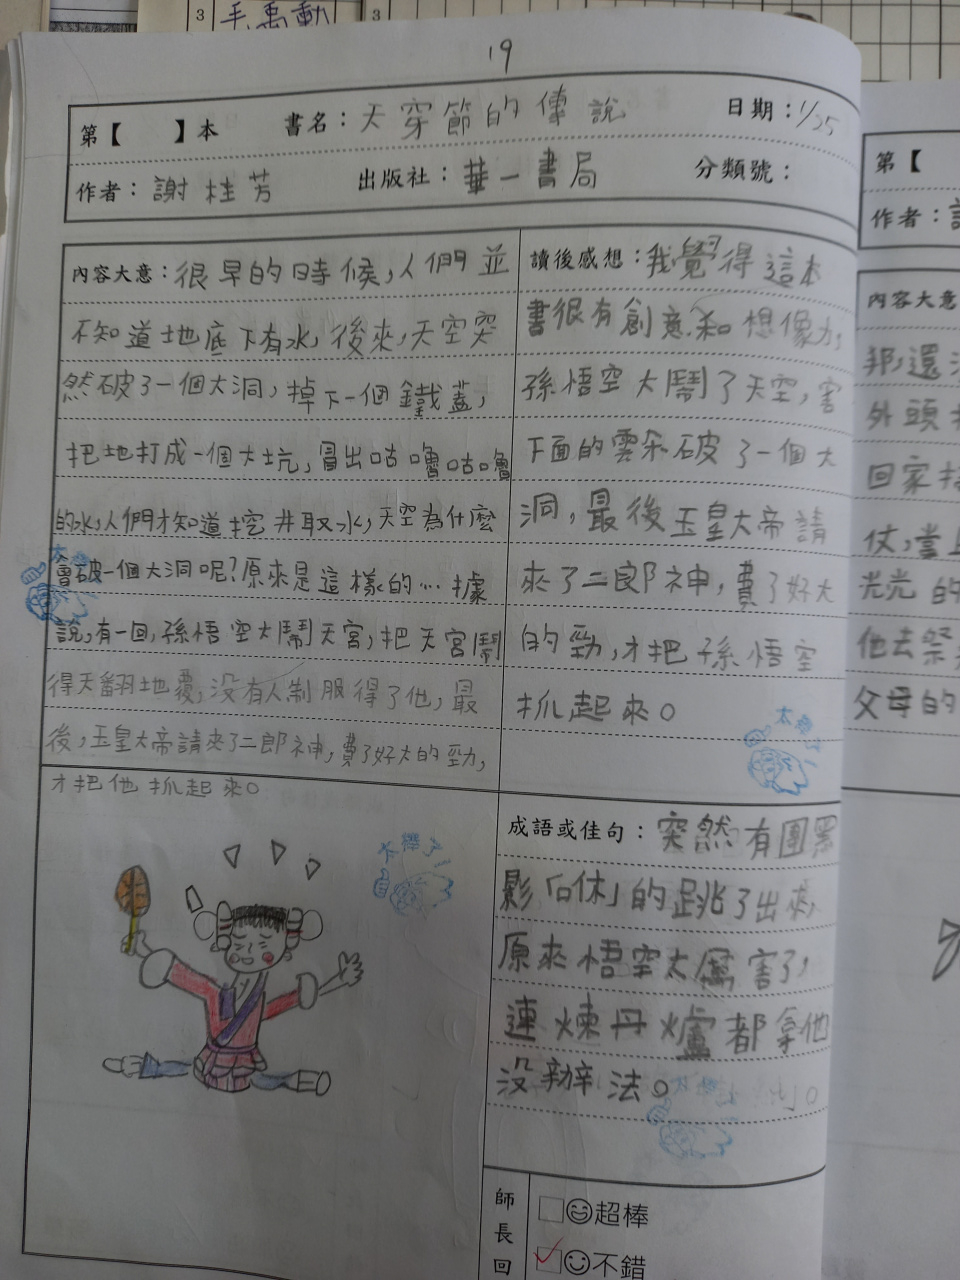 3 毛禹勳 3
19
第【 】本 書名：天穿節的傳說 日期：1/25
作者：謝桂芳 出版社：華一書局 分類號：
內容大意：很早的時候，人們並
不知道地底下有水，後來，天空突
然破了一個大洞，掉下一個鐵蓋，
把地打成一個大坑，冒出咕嚕咕嚕
的水，人們才知道挖井取水，天空為什麼
會破一個大洞呢？原來是這樣的…據
說，有一回，孫悟空大鬧天宮，把天宮鬧
得天翻地覆，沒有人制服得了他，最
後，玉皇大帝請來了二郎神，費了好大的勁，
才把他抓起來。
讀後感想：我覺得這本
書很有創意和想像力，
孫悟空大鬧了天空，害
下面的雲朵破了一個大
洞，最後玉皇大帝請
來了二郎神，費了好大
的勁，才把孫悟空
抓起來。
成語或佳句：突然有團黑
影「咻」的跳了出來，
原來悟空太厲害了，
連煉丹爐都拿他
沒辦法。
師長回
超棒
不錯
第【
作者：
內容大意
邦，還
外頭
回家
仗，當
光光的
他去祭
父母的